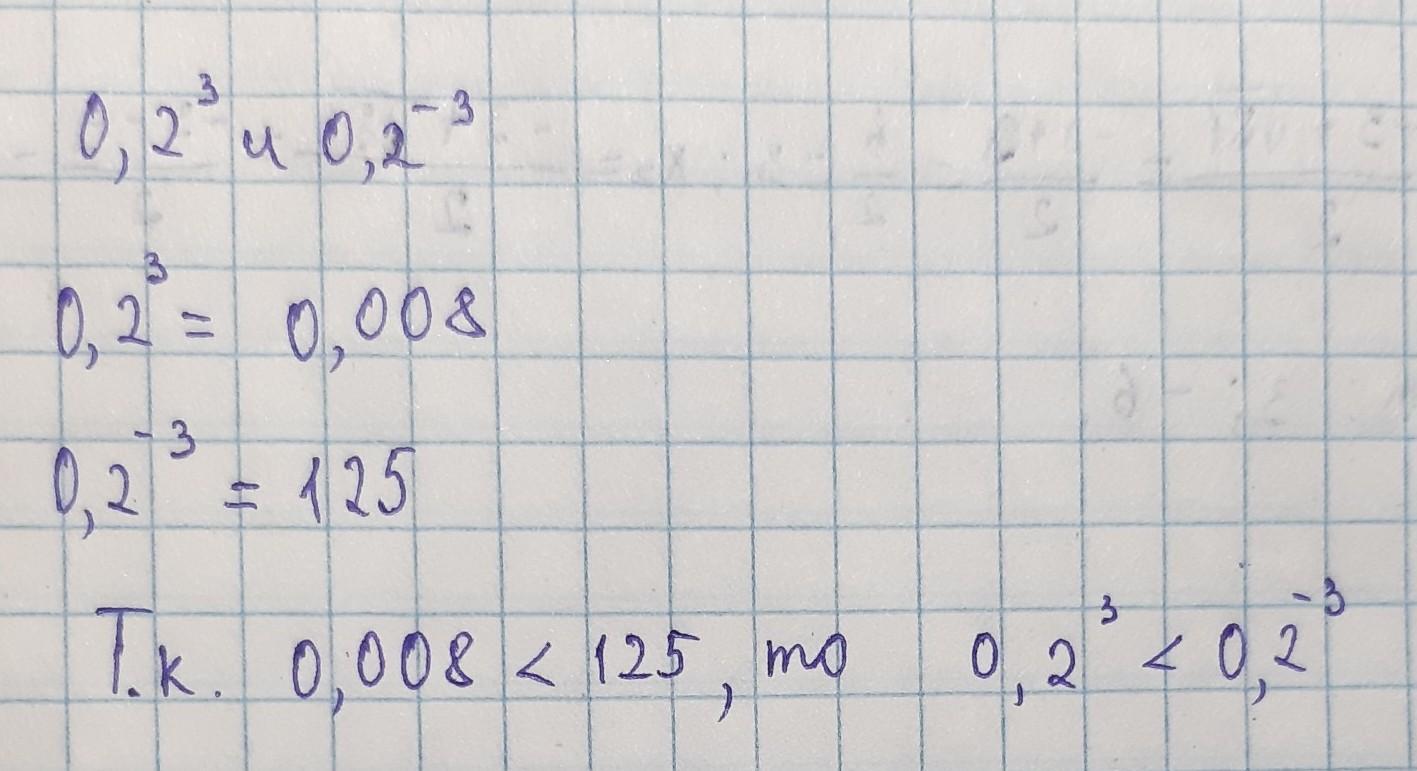 0,2³ и 0,2⁻³
0,2³ = 0,008
0,2⁻³ = 125
Т.к. 0,008 < 125, то 0,2³ < 0,2⁻³